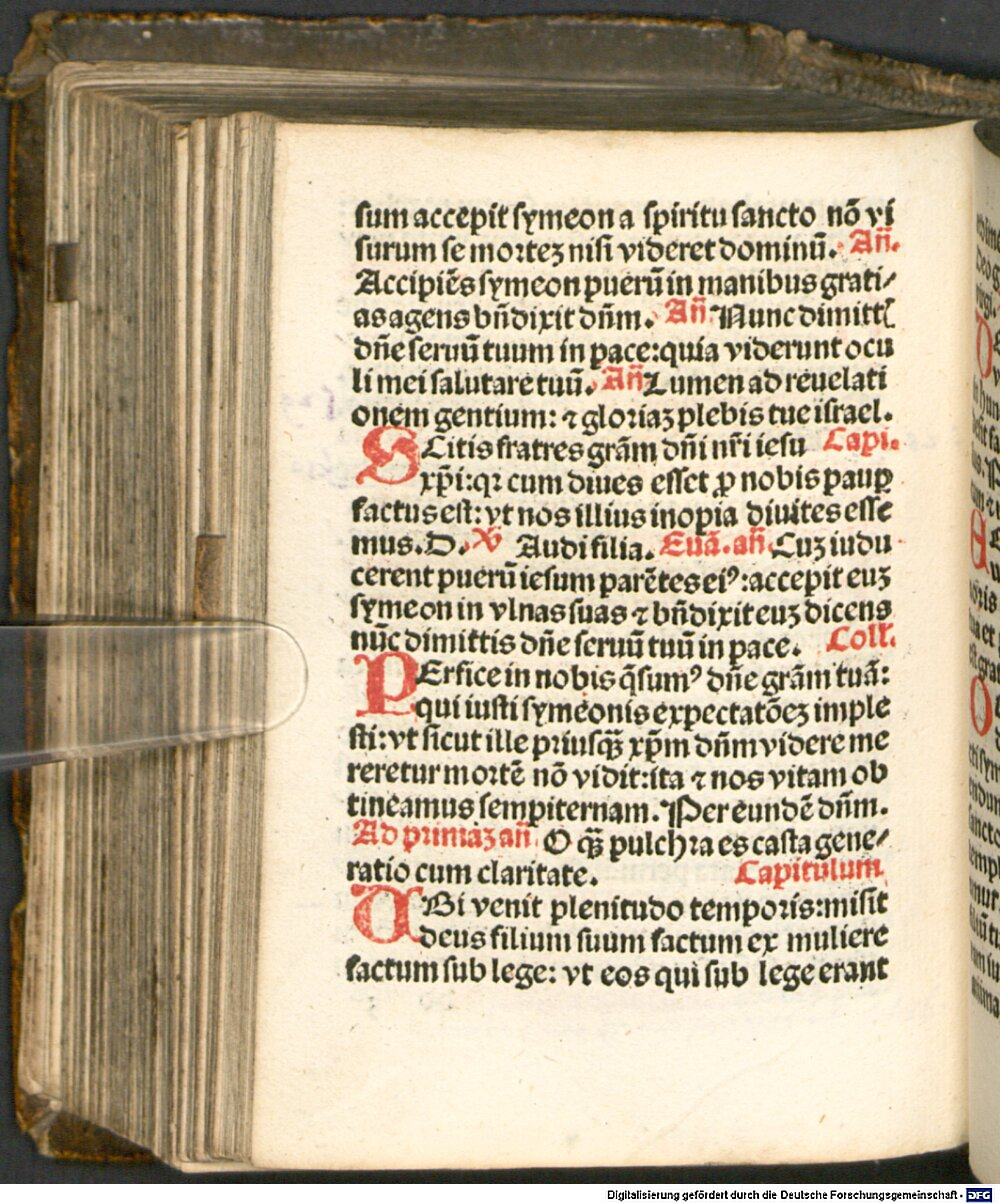 sum accepit symeon a spiritu sancto nō vi
surum se mortez nisi videret dominū. Añ.
Accipiēs symeon puerū in manibus grati/
as agens bñdixit dñm. Añ Nunc dimittꝭ
dñe seruū tuum in pace: quia viderunt ocu
li mei salutare tuū. Añ Lumen ad reuelati
onem gentium: ⁊ gloriaz plebis tue israel.
SCitis fratres grām dñi nr̄i iesu Capi.
xp̄i: qꝛ cum diues esset ꝓ nobis pauꝑ
factus est: vt nos illius inopia diuites esse
mus. D. Ꝟ Audi filia. Euā. añ. Cuz indu
cerent puerū iesum parētes eiꝰ: accepit euz
symeon in vlnas suas ⁊ bñdixit euz dicens
nūc dimittis dñe seruū tuū in pace. Coll.
PErfice in nobis q̄sumꝰ dñe grām tuā:
qui iusti symeonis expectatōez imple
sti: vt sicut ille priusqꝫ xp̄m dñm videre me
reretur mortē nō vidit: ita ⁊ nos vitam ob
tineamus sempiternam. Per eundē dñm.
Ad primaz añ O qꝫ pulchra es casta gene/
ratio cum claritate. Capitulum
UBi venit plenitudo temporis: misit
deus filium suum factum ex muliere
factum sub lege: vt eos qui sub lege erant
Digitalisierung gefördert durch die Deutsche Forschungsgemeinschaft - DFG